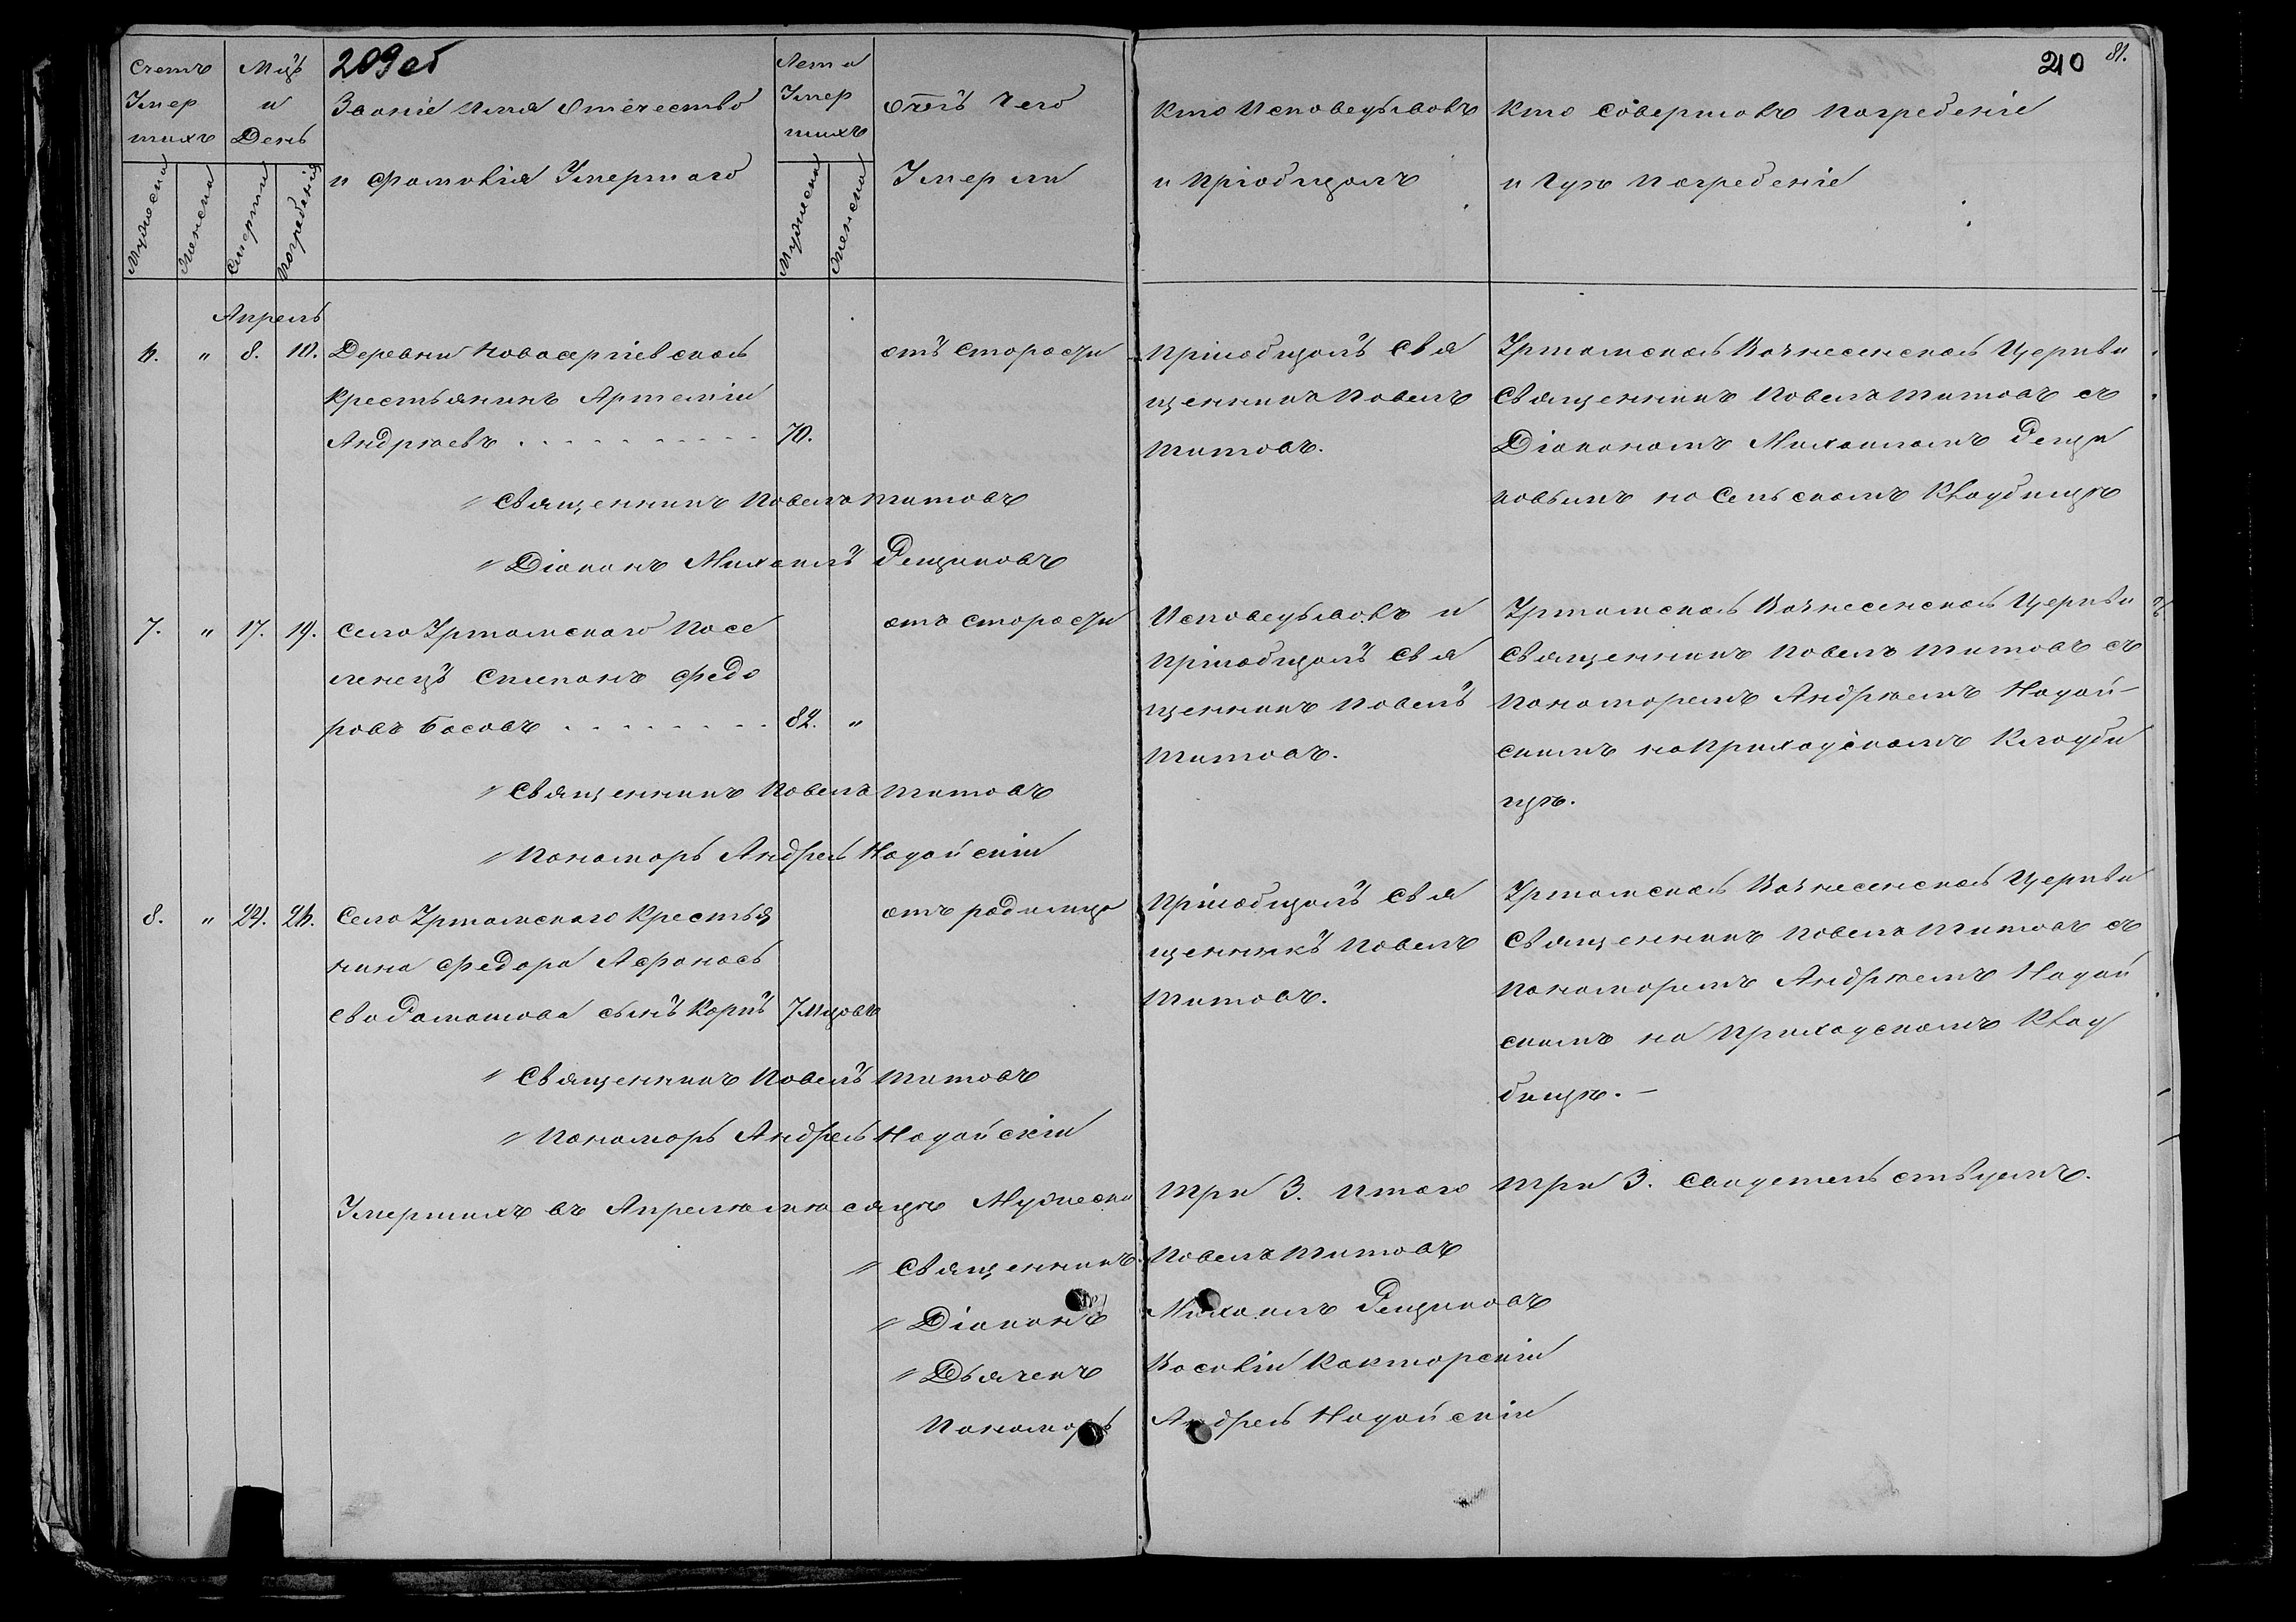 209об
210 81.
Счетъ Умер шихъ
Мужеска Женска
Мцъ и День
Смерти Погребенія
Званіе имя Отечество
и Фамилія Умершаго
Лета Умер шихъ
Мужеска Женска
Отъ чего
Умерли
Кто Исповедывалъ
и Пріобщалъ
Кто Совершалъ Погребеніе
и Гдѣ Погребены
Апрель
6. " 8. 10. Деревни Новосергіевской
крестьянинъ Артемій
Андреевъ . . . . . . . . . . 70.
отъ старости
Пріобщалъ Свя
щенникъ Павелъ
Титовъ.
Уртамской Вознесенской Церкви
Священникъ Павелъ Титовъ съ
Діакономъ Михаиломъ Рещи
ковымъ на Сельскомъ Кладбищѣ
" Священникъ Павелъ Титовъ
" Діаконъ Михаилъ Рещиковъ
7. " 17. 19. Село Уртамского Посе
ленецъ Степанъ Федо
ровъ Басовъ . . . . . . . . 82. "
отъ старости
Исповедывалъ и
Пріобщалъ Свя
щенникъ Павелъ
Титовъ.
Уртамской Вознесенской Церкви
Священникъ Павелъ Титовъ съ
Пономоремъ Андреемъ Надай-
скимъ на Приходскомъ Кладби
щѣ.
" Священникъ Павелъ Титовъ
" Пономорь Андрей Надайскій
8. " 24. 26. Село Уртамского Крестья
нина Федора Афонась
ева сынъ Карпъ 7 мцовъ
отъ родимца
Пріобщалъ Свя
щенникъ Павелъ
Титовъ.
Уртамской Вознесенской Церкви
Священникъ Павелъ Титовъ съ
Пономоремъ Андреемъ Надай
скимъ на Приходскомъ Клад
бищѣ. —
" Священникъ Павелъ Титовъ
" Пономорь Андрей Надайскій
Умершихъ въ Апреле месяцѣ Мужеска три 3. итого три 3. свидетельствуемъ.
" Священникъ Павелъ Титовъ
" Діаконъ Михаилъ Рещиковъ
" Дьячекъ Василій
Пономорь Андрей Надайскій